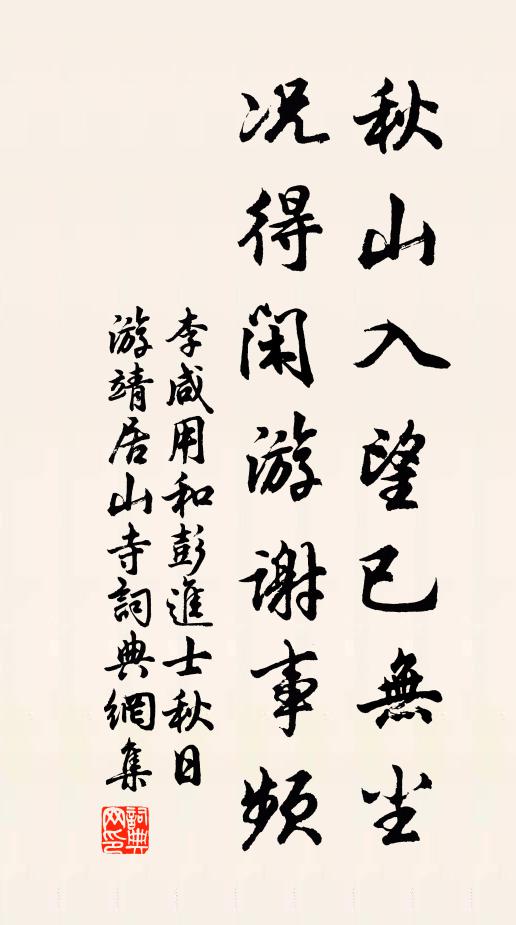 秋山入望已無尘
况得閑游謝事頻
李咸用和彭進士秋日
游靖居山寺詞典網集
詞典
网印